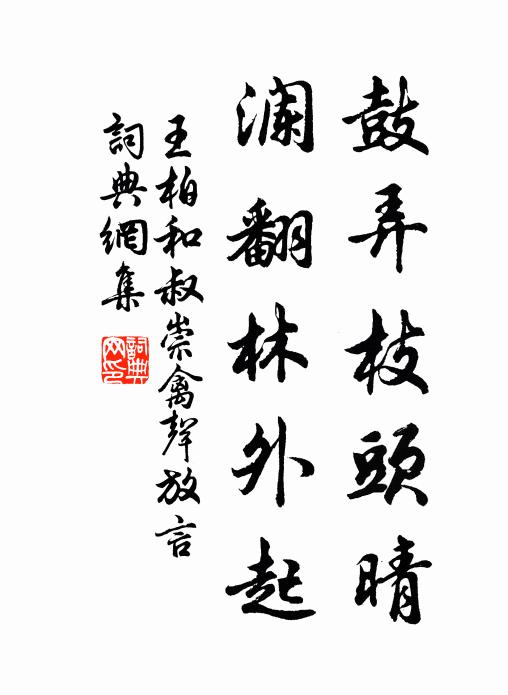 鼓弄枝頭晴
瀾翻林外起
王柏和叔崇禽聲放言
詞典網集
詞典网印